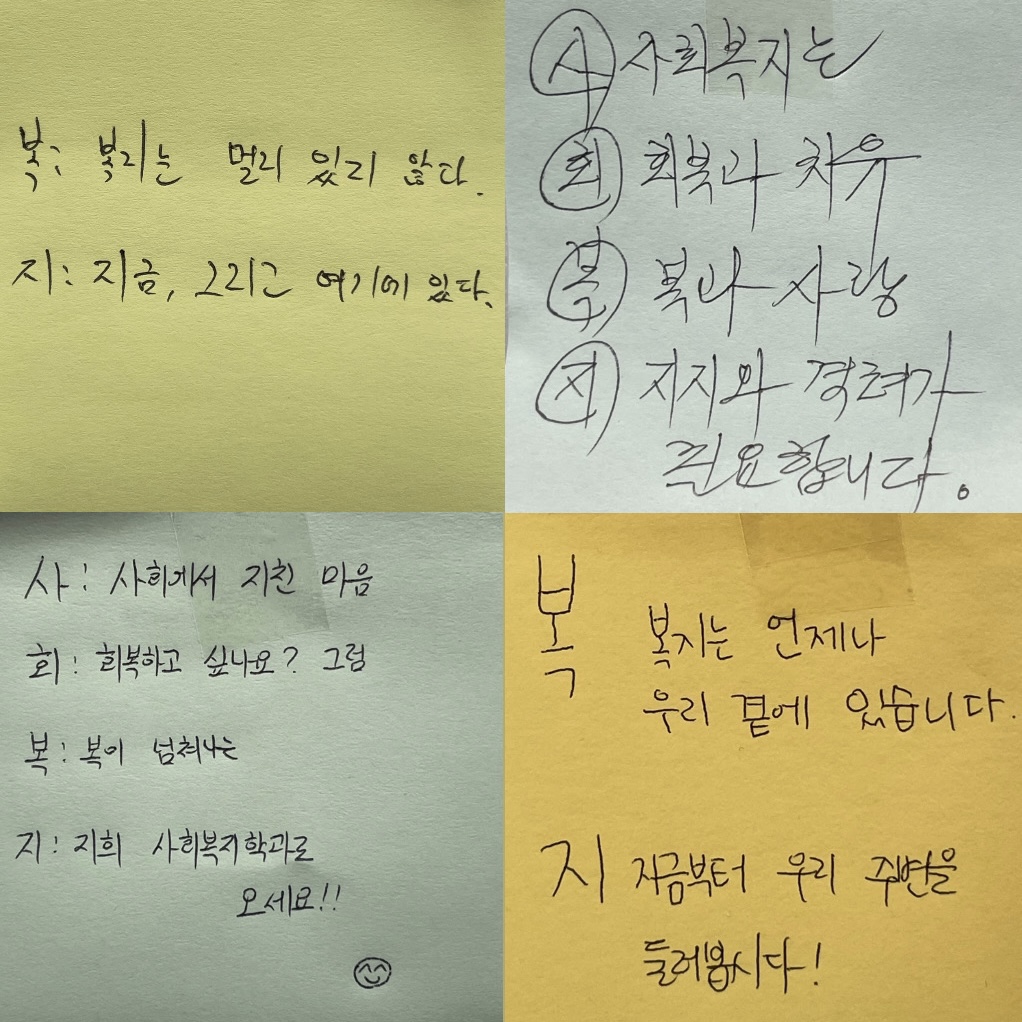 복: 복지는 멀리 있지 않다.
지: 지금, 그리고 여기에 있다.
사 사회복지는
회 회복과 치유
복 복과 사랑
지 지지와 격려가
필요합니다.
사: 사회에서 지친 마음
회: 회복하고 싶나요? 그럼
복: 복이 넘쳐나는
지: 지희 사회복지학과로
오세요!!
복 복지는 언제나
우리 곁에 있습니다.
지 지금부터 우리 주변을
들러봅시다!